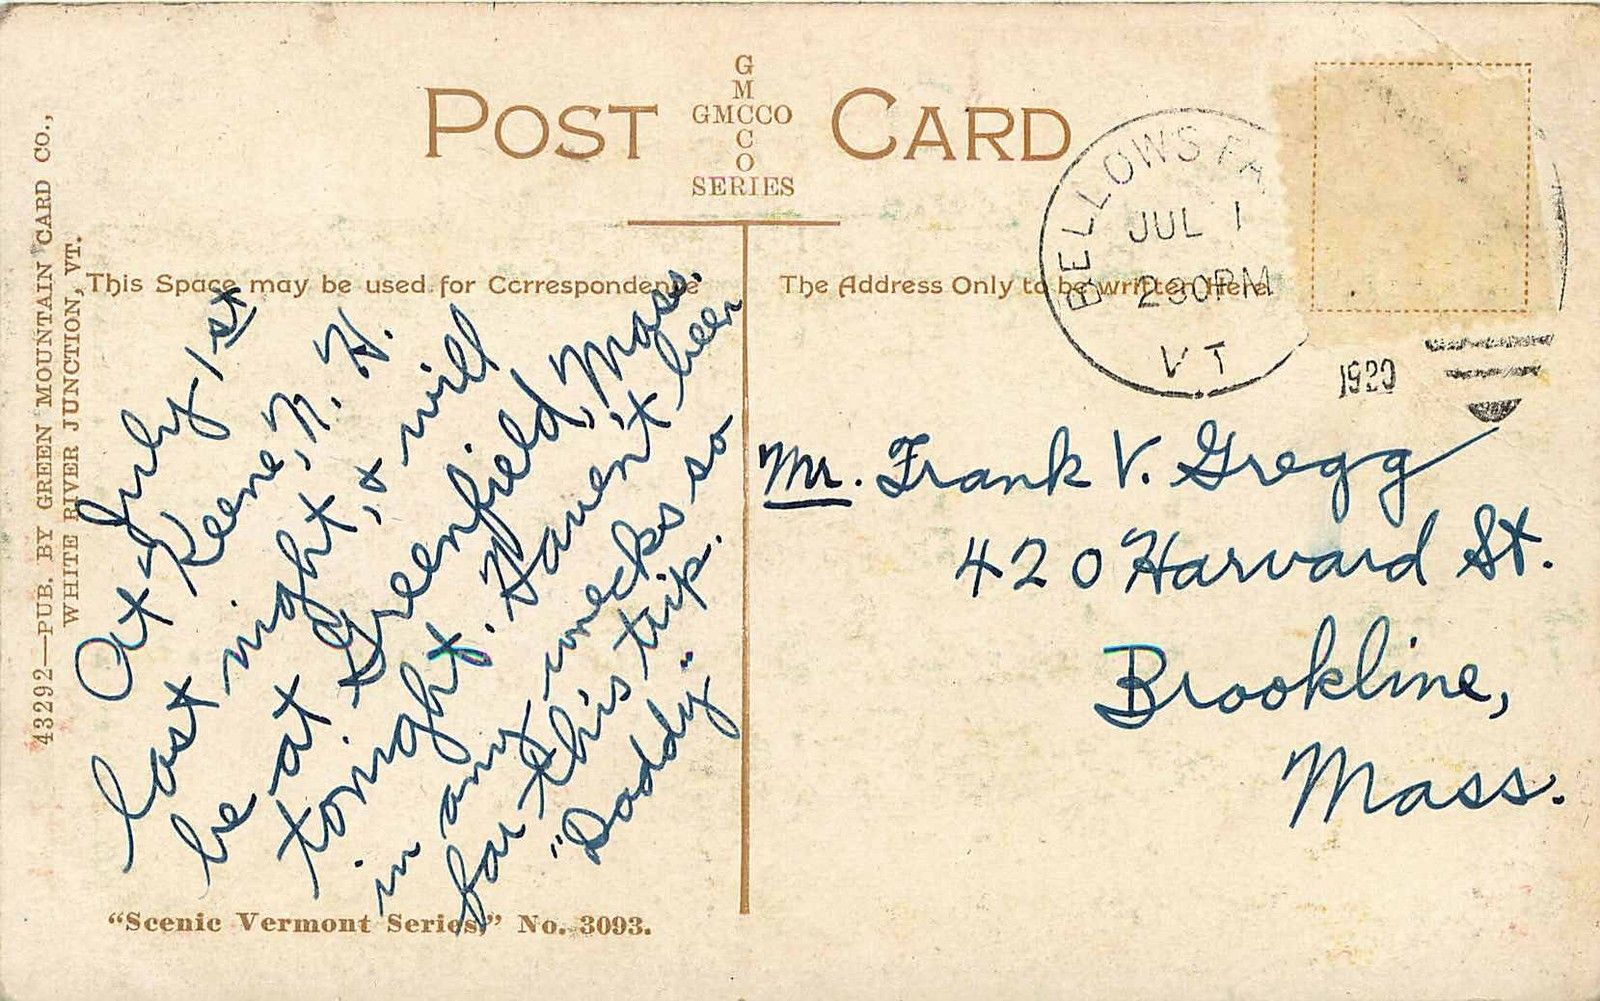 POST CARD
G
M
GMCCO
C
O
SERIES
43292—PUB. BY GREEN MOUNTAIN CARD CO.,
WHITE RIVER JUNCTION, VT.
This Space may be used for Correspondence
The Address Only to be written Here
BELLOWS FA
JUL 1
2 30PM
VT
1920
July 1st
At Keene, N. H.
last night, & will
be at Greenfield, Mass.
tonight. Haven't been
in any wrecks so
far this trip.
"Daddy"
Mr. Frank V. Gregg
420 Harvard St.
Brookline,
Mass.
"Scenic Vermont Series," No. 3093.